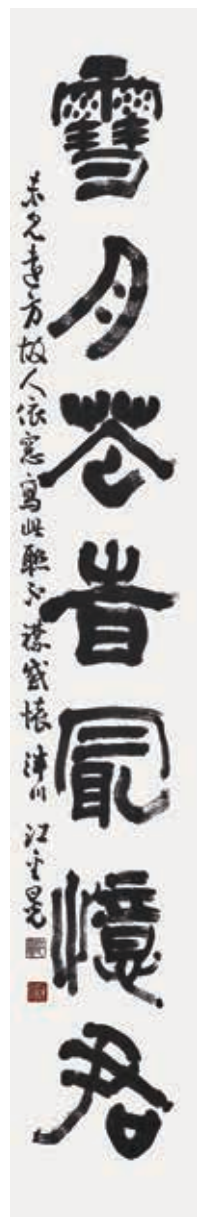 雪月花旹冣憶君
未見遠方故人依窓寫此聯不襟感懷 津川 江